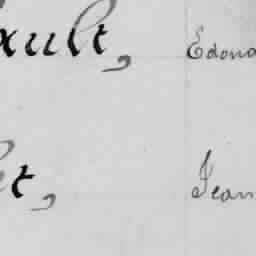 ault, Edoua
et, Jean